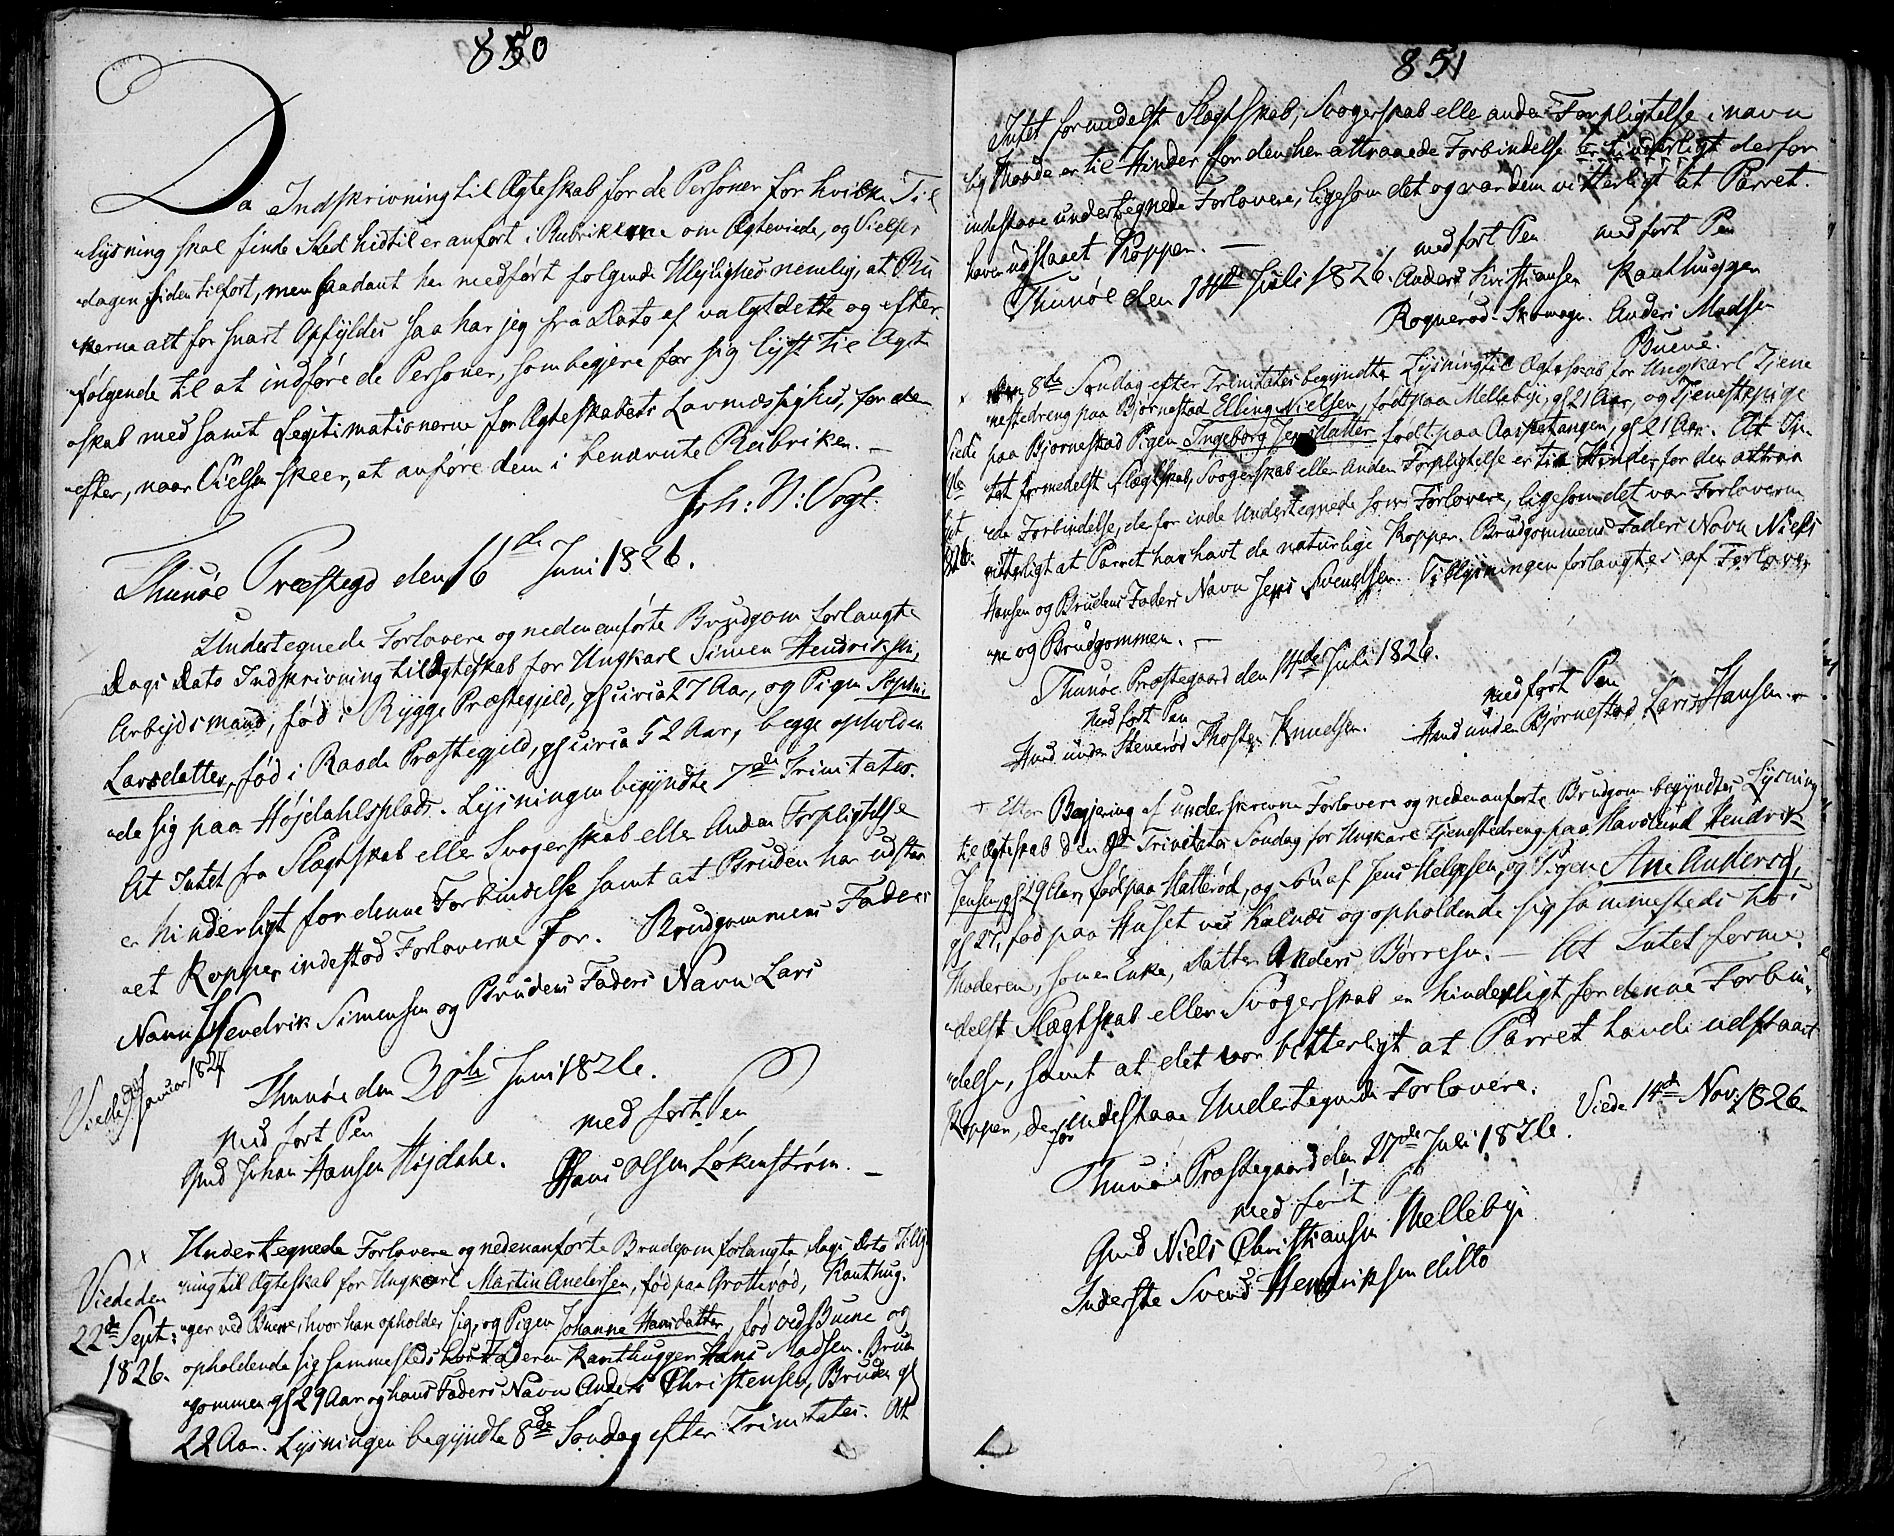 850
Da Indskrivning til Ægteskab for de Personer for hvilken Til
lysning skal finde Sted hidtil er anført i Rubrikkerne om Ægteviede, og Vielses
dagen siden tilført, men saadant har medført følgende Ulejlighed nemlig, at Ru
kerne alt for snart Opfyldes saa har jeg fra Dato af valgt dette og efter
følgende til at indføre de Personer, som begjere for sig lyst til Ægt
skab med samt Legitimationerne for Ægteskabets Lovmæssighed, for der
efter, naar Vielsen skeer, at anføre dem i benævnte Rubriker. —
Joh: N: Vogt.
Thunøe Præstegd den 16de Juni 1826.
Undertegnede Forlovere og nedenanførte Brudgom forlangte
Dags Dato Indskrivning til Ægteskab for Ungkarl Simen Hendriksen,
Arbejdsmand, fød i Rygge Præstegjeld, gl circa 27 Aar, og Pigen Sophie
Larsdatter, fød i Raade Præstegjeld, gl circa 52 Aar, begge opholden
de sig paa Højdahlsplads. Lysningen begyndte 7de Trinitates.
At Intet fra Slægtskab eller Svogerskab elle Anden Forpligtelse
er hinderligt for denne Forbindelse samt at Bruden har udsta
aet Kopper indestod Forloverne for. Brudgommens Faders
Navn Hendrik Simensen og Brudens Faders Navn Lars
Viede Januar 1827
Thunøe den 30te Juni 1826.
med ført Pen
med ført Pen
Gmd Johan Hansen Højdahl.
Hans Olsen Løkenstrøm. —
× Undertegnede Forlovere og nedenanførte Brudgom forlangte dags Dato Tillys
Viede den
ning til Ægteskab for Ungkarl Martin Andersen, fød paa Grotterød, Kanthug.
22de Sept:
ger ved Buene, hvor han opholder sig, og Pigen Johanne Hansdatter, fød ved Buene og
1826.
opholdende sig sammesteds hos Faderen Kanthugger Hans Madsen. Brud
gommen gl 29 Aar og hans Faders Navn Anders Christensen, Bruden gl
22 Aar. Lysningen begyndte 8de Søndag efter Trinitates. At
851
Intet formedelst Slægtskab, Svogerskab elle anden Forpligtelse i navn
lig Maade er til Hinder for den her attraaede Forbindelse er hinderligt derfor
indestaae undertegnede Forlovere, ligesom det og var dem vitterligt at Parret
haver udstaaet Kopper. —
Thunøe den 14de Juli 1826.
med ført Pen
med ført Pen
Anders Christiansen
Kanthugger
Rognerød Skomager.
Anders Madsen
Buene.
× den 8de Søndag efter Trinitates begyndte Lysning til Ægteskab for Ungkarl Tjene
nestedreng paa Bjørnestad Elling Nielsen, født paa Mellebye, gl 21 Aar, og Tjenestepige
Viede
paa Bjørnestad Pigen Ingeborg Jensdatter født paa Aaspetangen, gl 21 Aar. At In
tet formedelst Slægtskab, Svogerskab eller Anden Forpligtelse er til Hinder for den attraa
ede Forbindelse, derfor inde Undertegnede som Forlovere, ligesom det var Forloverne
1826.
vitterligt at Parret har havt de naturlige Kopper. Brudgommens Faders Navn Niels
Hansen og Brudens Faders Navn Jens Svendsen. Tillysningen forlangtes af Forlover
ne og Brudgommen. —
Thunøe Præstegaard den 14de Juli 1826.
med ført Pen
med ført Pen
Husd under Stenerød Thosten Knudsen.
Husd under Bjørnestad Lars Hansen. —
+ Efter Begjering af underskrevne Forlovere og nedenanførte Brudgom begyndtes Lysning
til Ægteskab den 9de Trinitates Søndag for Ungkarl Tjenestedreng paa Havslund Hendrik
Jensen, gl 29 Aar, fød paa Hatterød, og Søn af Jens Helgesen, og Pigen Ane Andersd.,
gl 27, fød paa Huset ved Kalnæs og opholdende sig sammesteds hos
Moderen, som er Enke, datter Anders Børresen. — At Intet forme
delst Slægtskab eller Svogerskab er hinderligt for denne Forbin
delse, samt at det var vitterligt at Parret havde udstaaet
Kopper, derfor indestaae Undertegnede Forlovere.
Viede 14de Nov. 1826.
Thunøe Præstegaard den 27de Juli 1826.
med ført P
Gmd Niels Christiansen Mellebye
Inderste Svend Hendriksen ditto